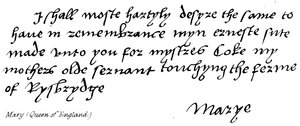 I shall moste hartyly desyre the same to
haue in remembrance myn erneste sute
made vnto you for mystres Coke my
mothers olde seruant touchyng the ferme
of Rysbrydge
Marye
Mary (Queen of England.)